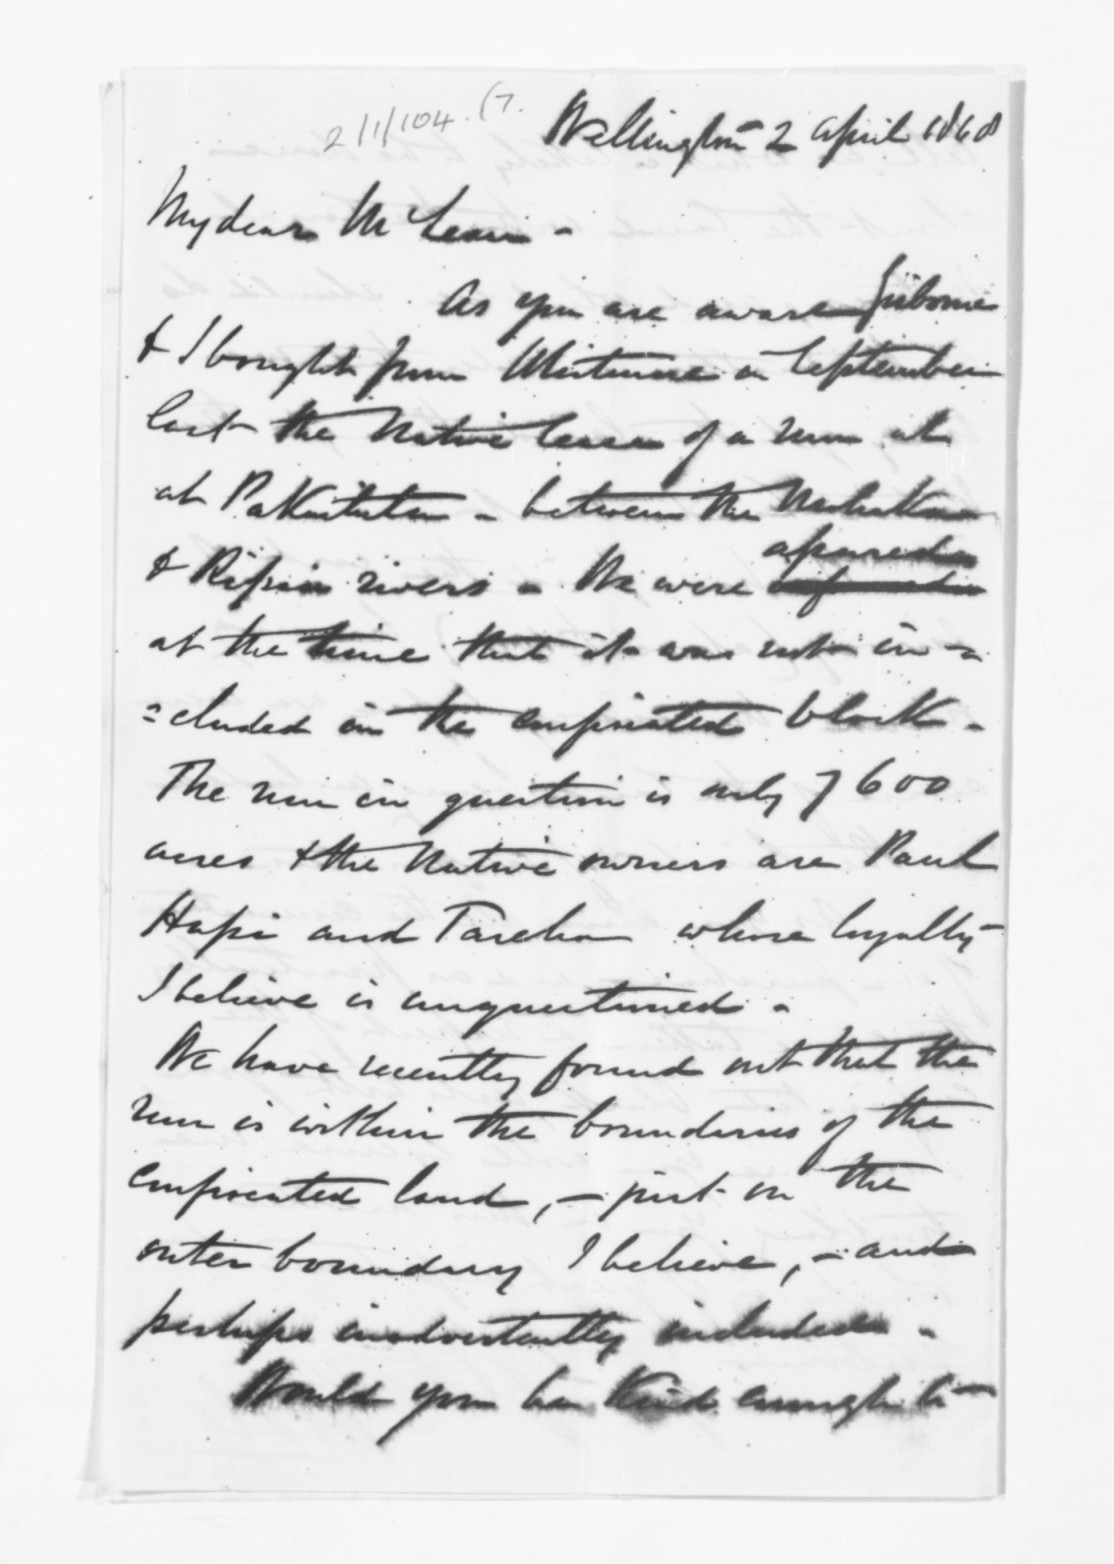 2/1/104. (7.
Wellington 2 April 1868
My dear McLean -
As you are aware Gisborne
& I bought from Whitmore in September
last the Native lease of a run at
at Pakaututu - between the Mohaka
& Ripia rivers - We were assured
at the time that it was not in -
=cluded in the confiscated block -
The run in question is only 7600
acres & the Native owners are Paul
Hapi and Tareha whose loyalty
I believe is unquestioned -
We have recently found out that the
run is within the boundaries of the
confiscated land, - just on the
outer boundary I believe, - and
perhaps inadvertently included -
Would you be kind enough to